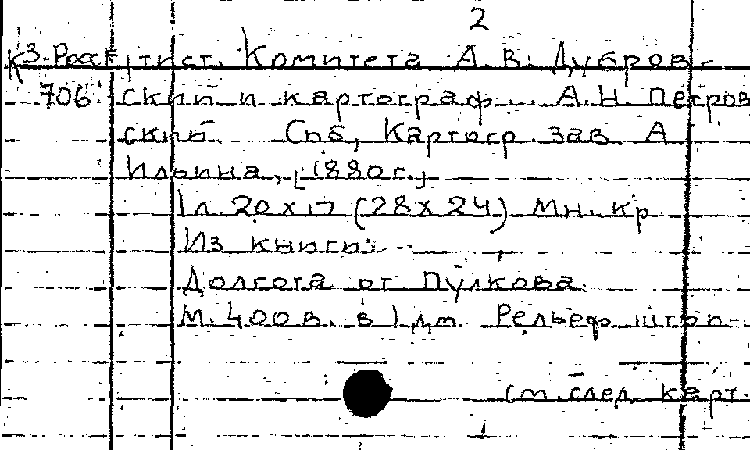 2
К3-Росс тист. Комитета А. В. Дубров-
706 ский и картограф. А. Н. Петров
ский Спб, Картогр. зав. А
Ильина, [1880г.]
1л. 20х17 (28х24) мн. кр
Из книги:
Долгота от Пулкова
М. 400в. в 1 дм. Рельеф штри-
См. след. карт.